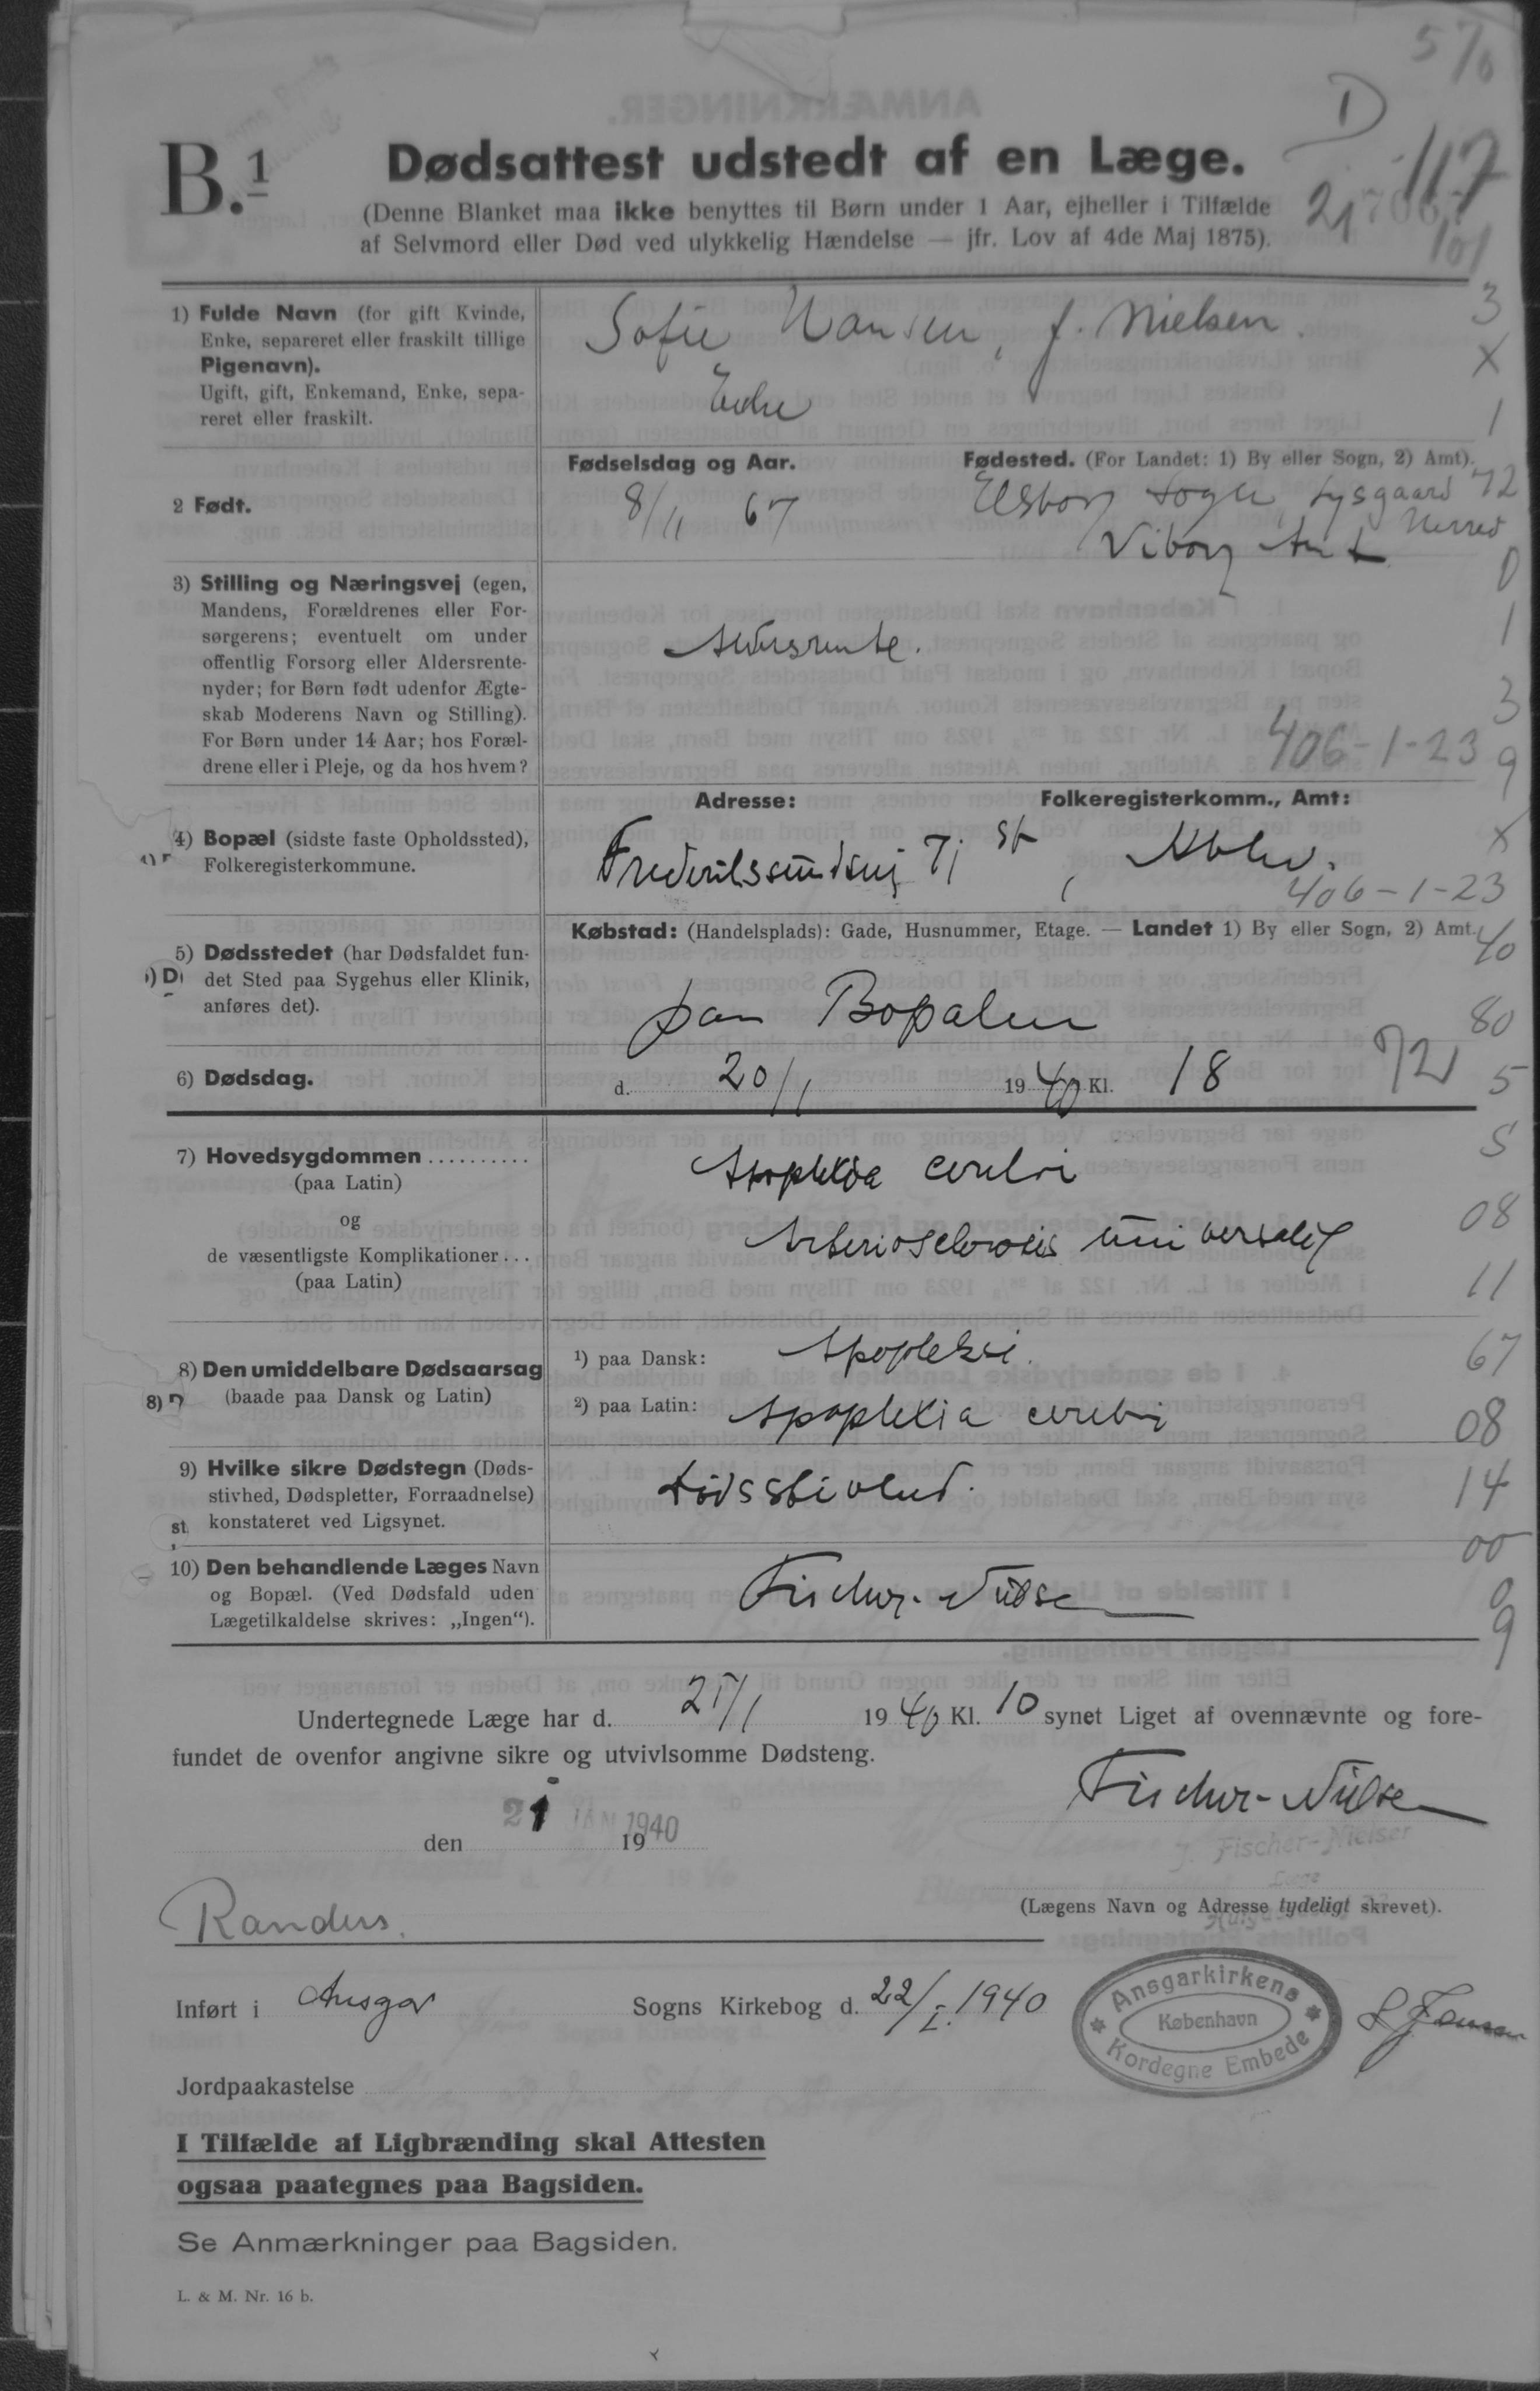 5/6
D
B.1
Dødsattest udstedt af en Læge.
117
(Denne Blanket maa ikke benyttes til Børn under 1 Aar, ejheller i Tilfælde
af Selvmord eller Død ved ulykkelig Hændelse — jfr. Lov af 4de Maj 1875).
21
101
1) Fulde Navn (for gift Kvinde,
Enke, separeret eller fraskilt tillige
Pigenavn).
Ugift, gift, Enkemand, Enke, sepa-
reret eller fraskilt.
Sofie Hansen, f. Nielsen.
Enke
3
X
1
Fødselsdag og Aar.
Fødested. (For Landet: 1) By eller Sogn, 2) Amt).
2 Født.
8/11 67
Elsborg Sogn, Lysgaard
Herred
Viborg Amt
72
0
3) Stilling og Næringsvej (egen,
Mandens, Forældrenes eller For-
sørgerens; eventuelt om under
offentlig Forsorg eller Aldersrente-
nyder; for Børn født udenfor Ægte-
skab Moderens Navn og Stilling).
For Børn under 14 Aar; hos Foræl-
drene eller i Pleje, og da hos hvem?
Aldersrente.
1
3
406-1-23
9
Adresse:
Folkeregisterkomm., Amt:
4) Bopæl (sidste faste Opholdssted),
Folkeregisterkommune.
Frederikssundsvej 7 st, Kbhv.
X
406-1-23
Købstad: (Handelsplads): Gade, Husnummer, Etage. — Landet 1) By eller Sogn, 2) Amt.
40
5) Dødsstedet (har Dødsfaldet fun-
det Sted paa Sygehus eller Klinik,
anføres det).
paa Bopælen
80
6) Dødsdag.
d. 20/1 1940 Kl. 18
72
5
7) Hovedsygdommen ..........
(paa Latin)
og
de væsentligste Komplikationer...
(paa Latin)
Apoplexia cerebri
Arteriosclerosis universalis
5
08
11
8) Den umiddelbare Dødsaarsag
(baade paa Dansk og Latin)
1) paa Dansk: Apopleksi.
67
2) paa Latin: Apoplexia cerebri
08
9) Hvilke sikre Dødstegn (Døds-
stivhed, Dødspletter, Forraadnelse)
konstateret ved Ligsynet.
Dødsstivhed.
14
00
10) Den behandlende Læges Navn
og Bopæl. (Ved Dødsfald uden
Lægetilkaldelse skrives: „Ingen“).
Fischer-Nielsen
0
9
Undertegnede Læge har d. 21/1 1940 Kl. 10 synet Liget af ovennævnte og fore-
fundet de ovenfor angivne sikre og utvivlsomme Dødsteng.
Fischer-Nielsen
den 21 JAN 1940
19
J. Fischer-Nielsen
Læge
(Lægens Navn og Adresse tydeligt skrevet).
Randers.
Inført i Ansgar Sogns Kirkebog d. 22/I. 1940
Ansgarkirkens
København
Kordegne Embede
Jordpaakastelse
I Tilfælde af Ligbrænding skal Attesten
ogsaa paategnes paa Bagsiden.
Se Anmærkninger paa Bagsiden.
L. & M. Nr. 16 b.